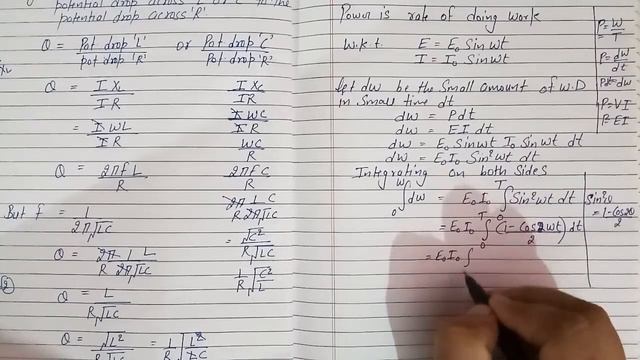 potential drop across 'L' or 'C' to the
potential drop across 'R'.
Q = Pot drop 'L' / pot drop 'R' or Pot drop 'C' / Pot drop 'R'
Q = I XL / I R
I XC / IR
= I WL / I R
I WC / I R
WC / R
Q = 2πf L / R
2πFC / R
But f = 1 / 2π√LC
2π 1 C / R 2π√LC
Q = 2π 1 L / R 2π√LC
= √C² / R√LC
Q = L / R√LC
1/R √C²/L
Q = √L² / R√LC = 1/R √L²/LC
Power is rate of doing work
W.k.t. E = E₀ Sin wt
I = I₀ Sin wt
Let dw be the Small amount of W.D
in Small time dt
dw = Pdt
dw = EI dt
dw = E₀ Sin wt I₀ Sin wt dt
dw = E₀I₀ Sin² wt dt
Integrating on both sides
₀∫ᵂ dw = E₀ I₀ ₀∫ᵀ Sin² wt dt
= E₀ I₀ ₀∫ᵀ (1 - cos 2wt / 2) dt
= E₀ I₀ ∫
P = W / T
P = dW / dt
Pdt = dw
P = VI
P = EI
Sin²θ
= 1 - Cos 2θ / 2